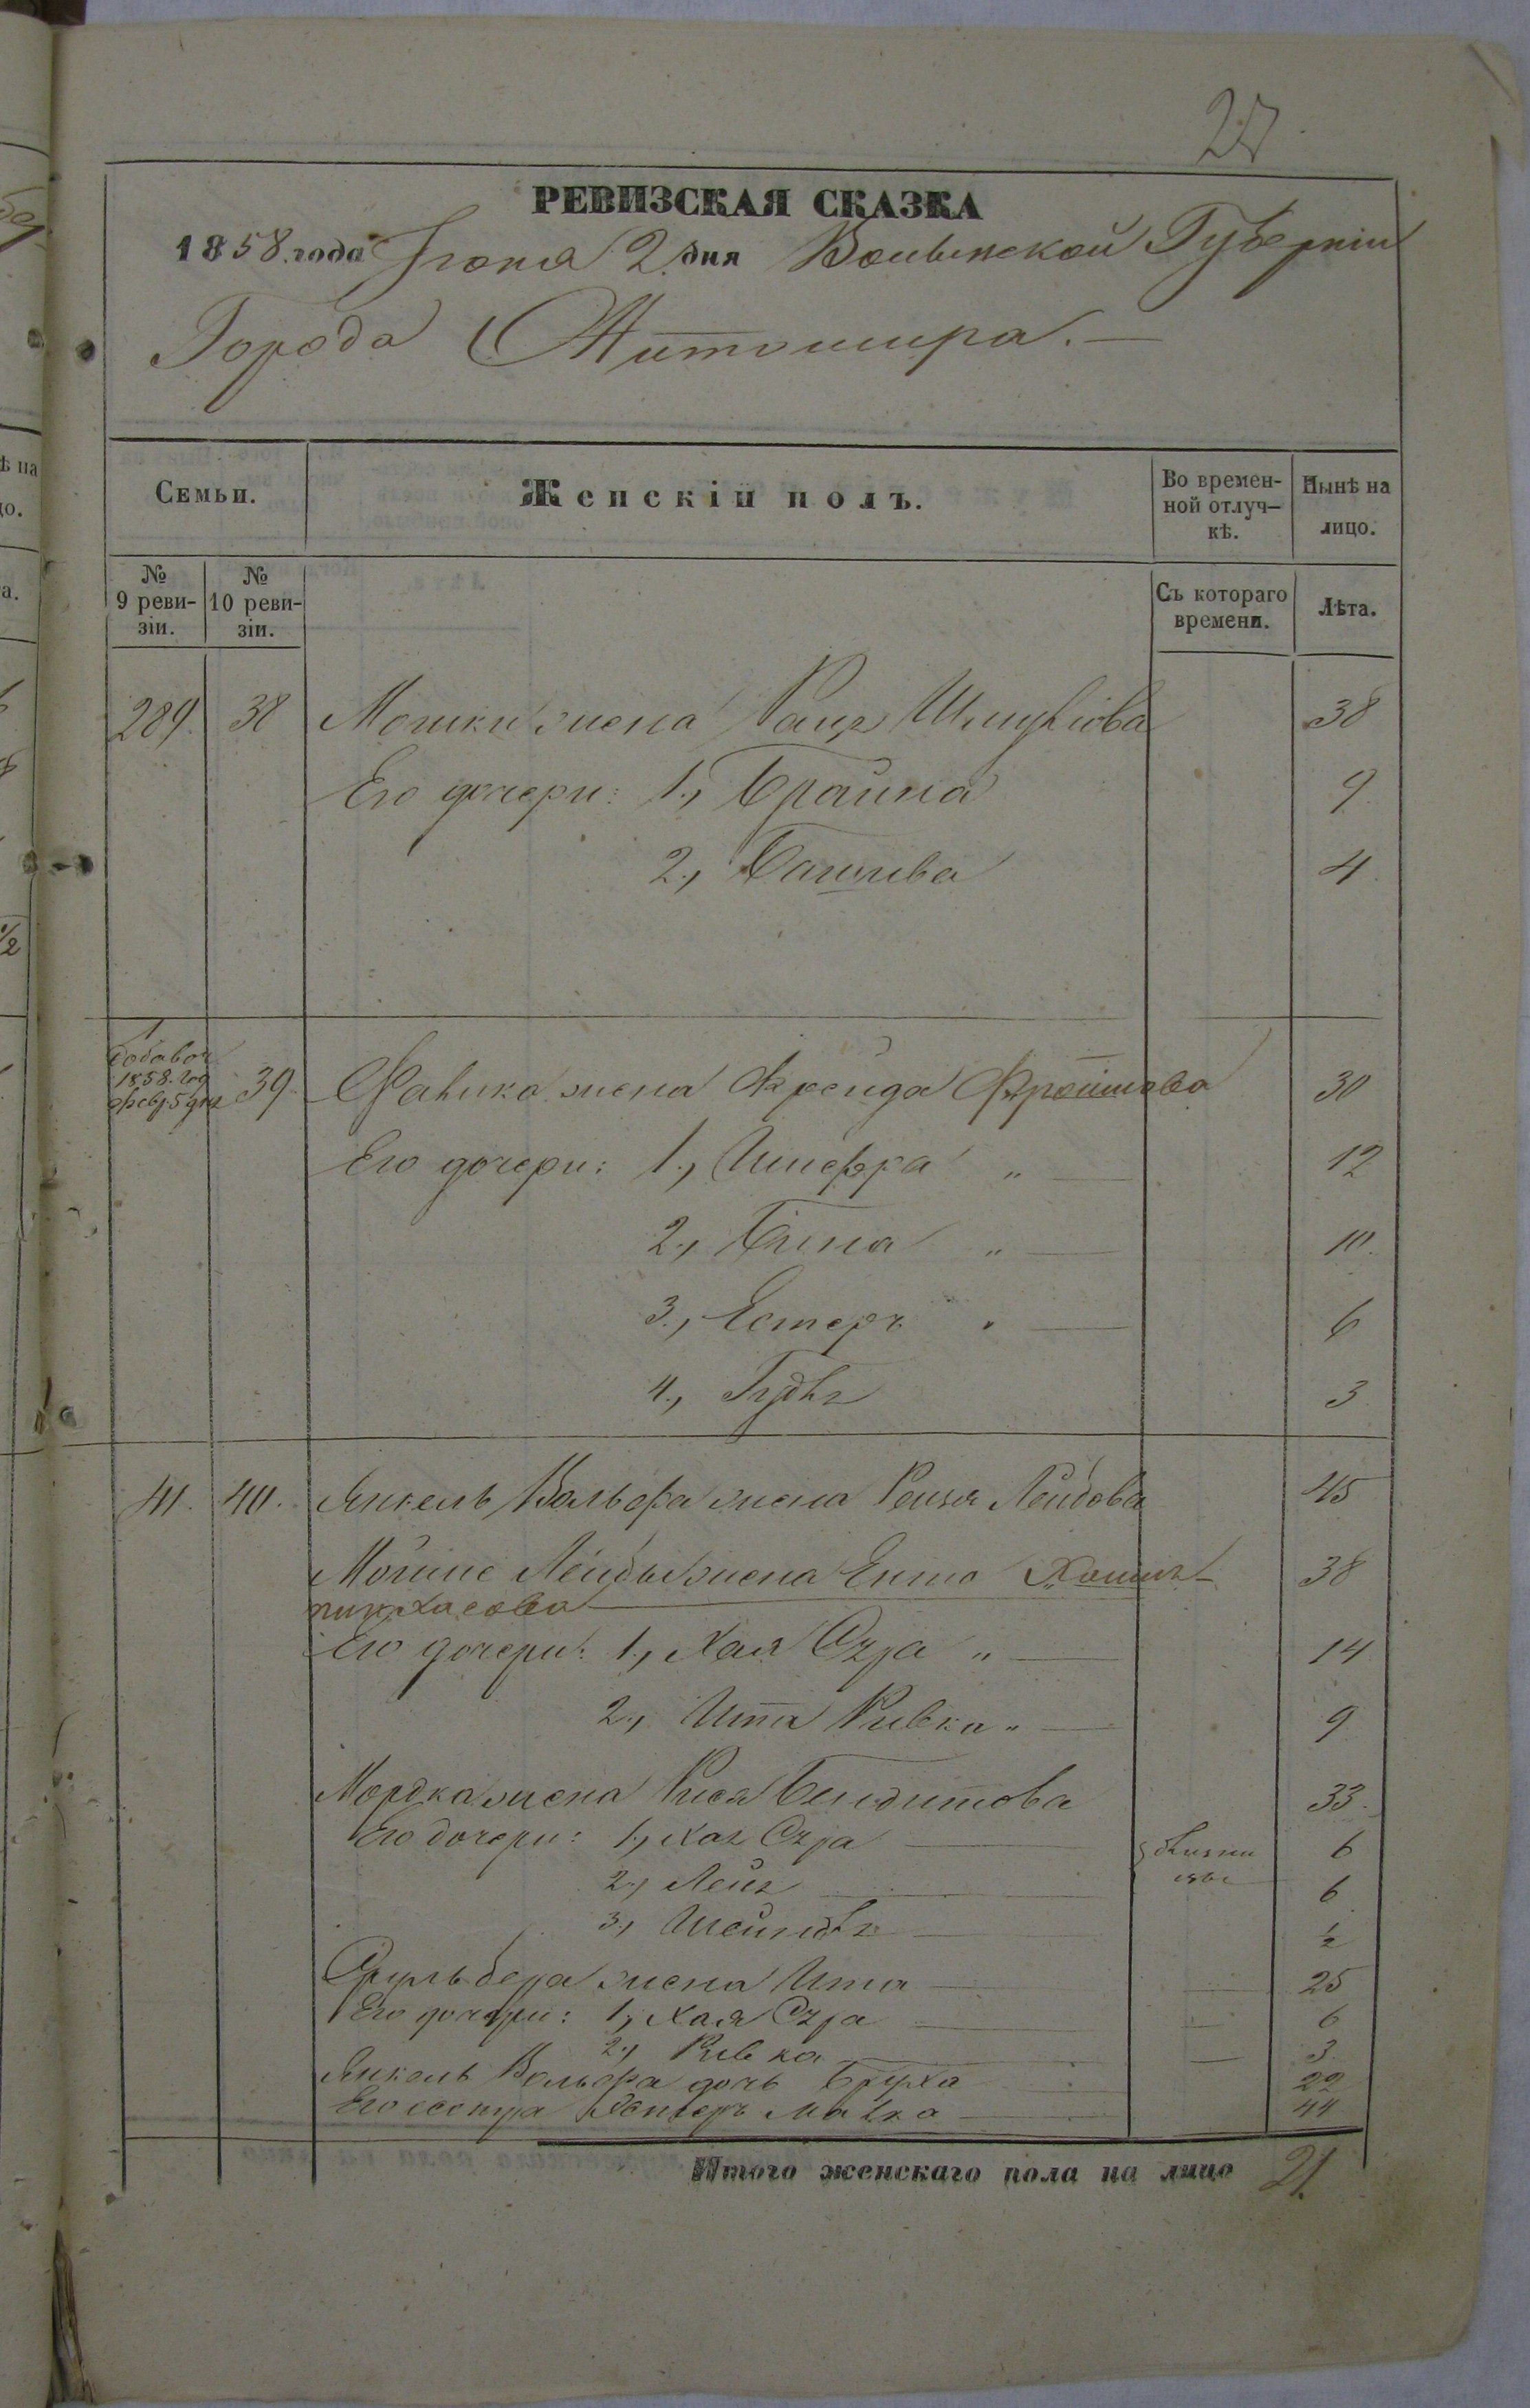 27
РЕВИЗСКАЯ СКАЗКА
1858. года Іюня 2. дня Волынской Губерніи
Города Житомира.—
Семьи.
Женскій полъ.
Во времен-
ной отлуч-
кѣ.
Нынѣ на
лицо.
№
9 реви-
зіи.
№
10 реви-
зіи.
Съ котораго
времени.
Лѣта.
289. 38 Мошки жена Шмулiова 38
Его дочери: 1., Брайна 9.
2., 4.
1858. год
февр. 5 дня 39. жена Фрейда 30
Его дочери: 1., " — 12
2., " — 10.
3., Естеръ " — 6
4., 3
41. 40. Янкель Вольфа жена Лейбова 45
Лейбы жена Ента 38
пинхасова
Его дочери: 1., Хая Сура " — 14
2., Ита Ривка " — 9
Мордка жена Рися Бендитова 33.
Его дочери: 1., Хая Сура — 6
2., Лея — 6
3., — ½
Сруль бера жена Ита — 25
Его дочери: 1., Хая Сура — 6
2., Ривка — 3
Янкель Вольфа дочь Бруха 22
Его сестра Естеръ — 44
Итого женскаго пола на лицо 21.